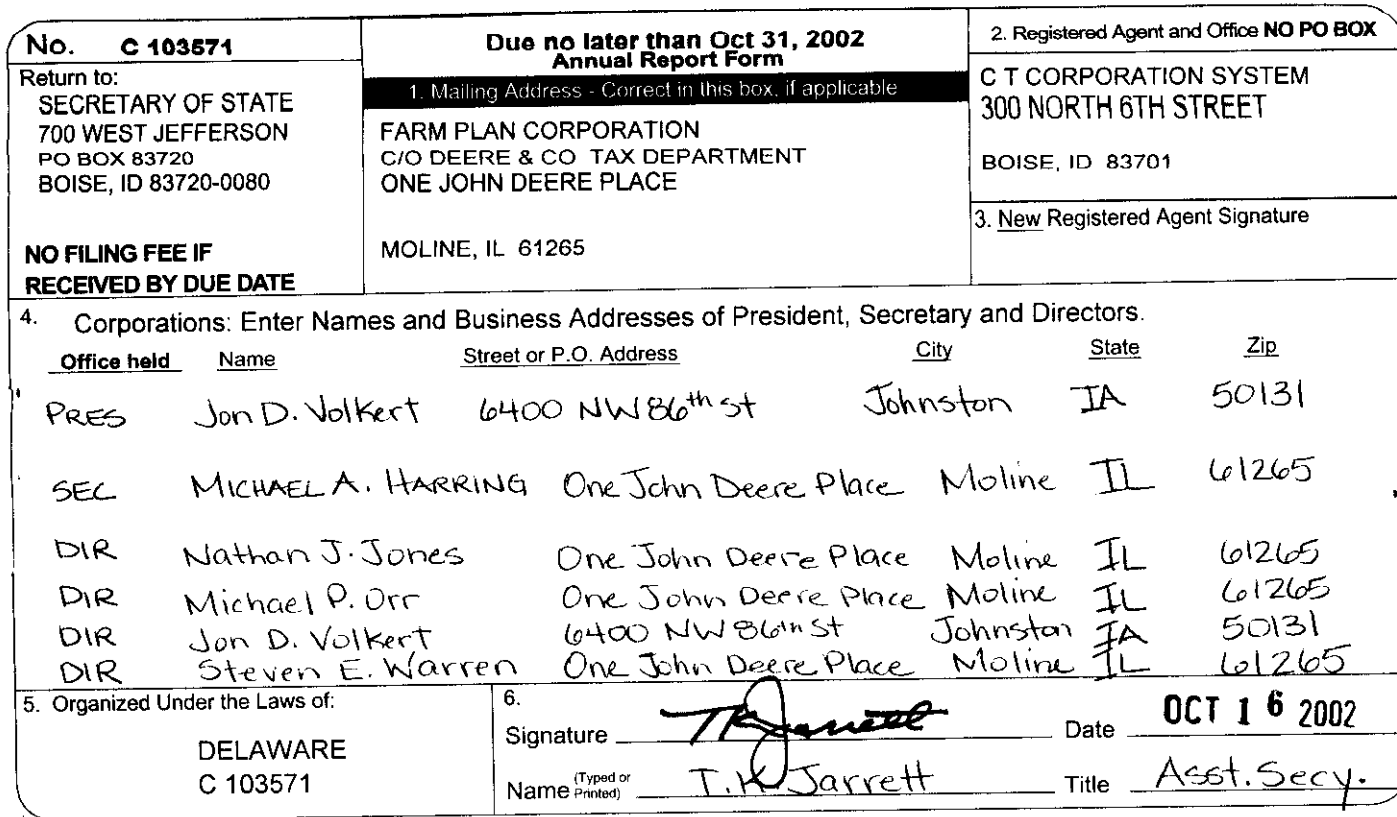 No. C 103571
Return to:
SECRETARY OF STATE
700 WEST JEFFERSON
PO BOX 83720
BOISE, ID 83720-0080
NO FILING FEE IF
RECEIVED BY DUE DATE
Due no later than Oct 31, 2002
Annual Report Form
1. Mailing Address - Correct in this box, if applicable
FARM PLAN CORPORATION
C/O DEERE & CO TAX DEPARTMENT
ONE JOHN DEERE PLACE
MOLINE, IL 61265
2. Registered Agent and Office NO PO BOX
C T CORPORATION SYSTEM
300 NORTH 6TH STREET
BOISE, ID 83701
3. New Registered Agent Signature
4. Corporations: Enter Names and Business Addresses of President, Secretary and Directors.
Office held Name Street or P.O. Address City State Zip
PRES Jon D. Volkert 6400 NW 86th St Johnston IA 50131
SEC MICHAEL A. HARRING One John Deere Place Moline IL 61265
DIR Nathan J. Jones One John Deere Place Moline IL 61265
DIR Michael P. Orr One John Deere Place Moline IL 61265
DIR Jon D. Volkert 6400 NW 86th St Johnston IA 50131
DIR Steven E. Warren One John Deere Place Moline IL 61265
5. Organized Under the Laws of:
DELAWARE
C 103571
6.
Signature TKJarrett Date OCT 16 2002
Name (Typed or Printed) T.K Jarrett Title Asst. Secy.